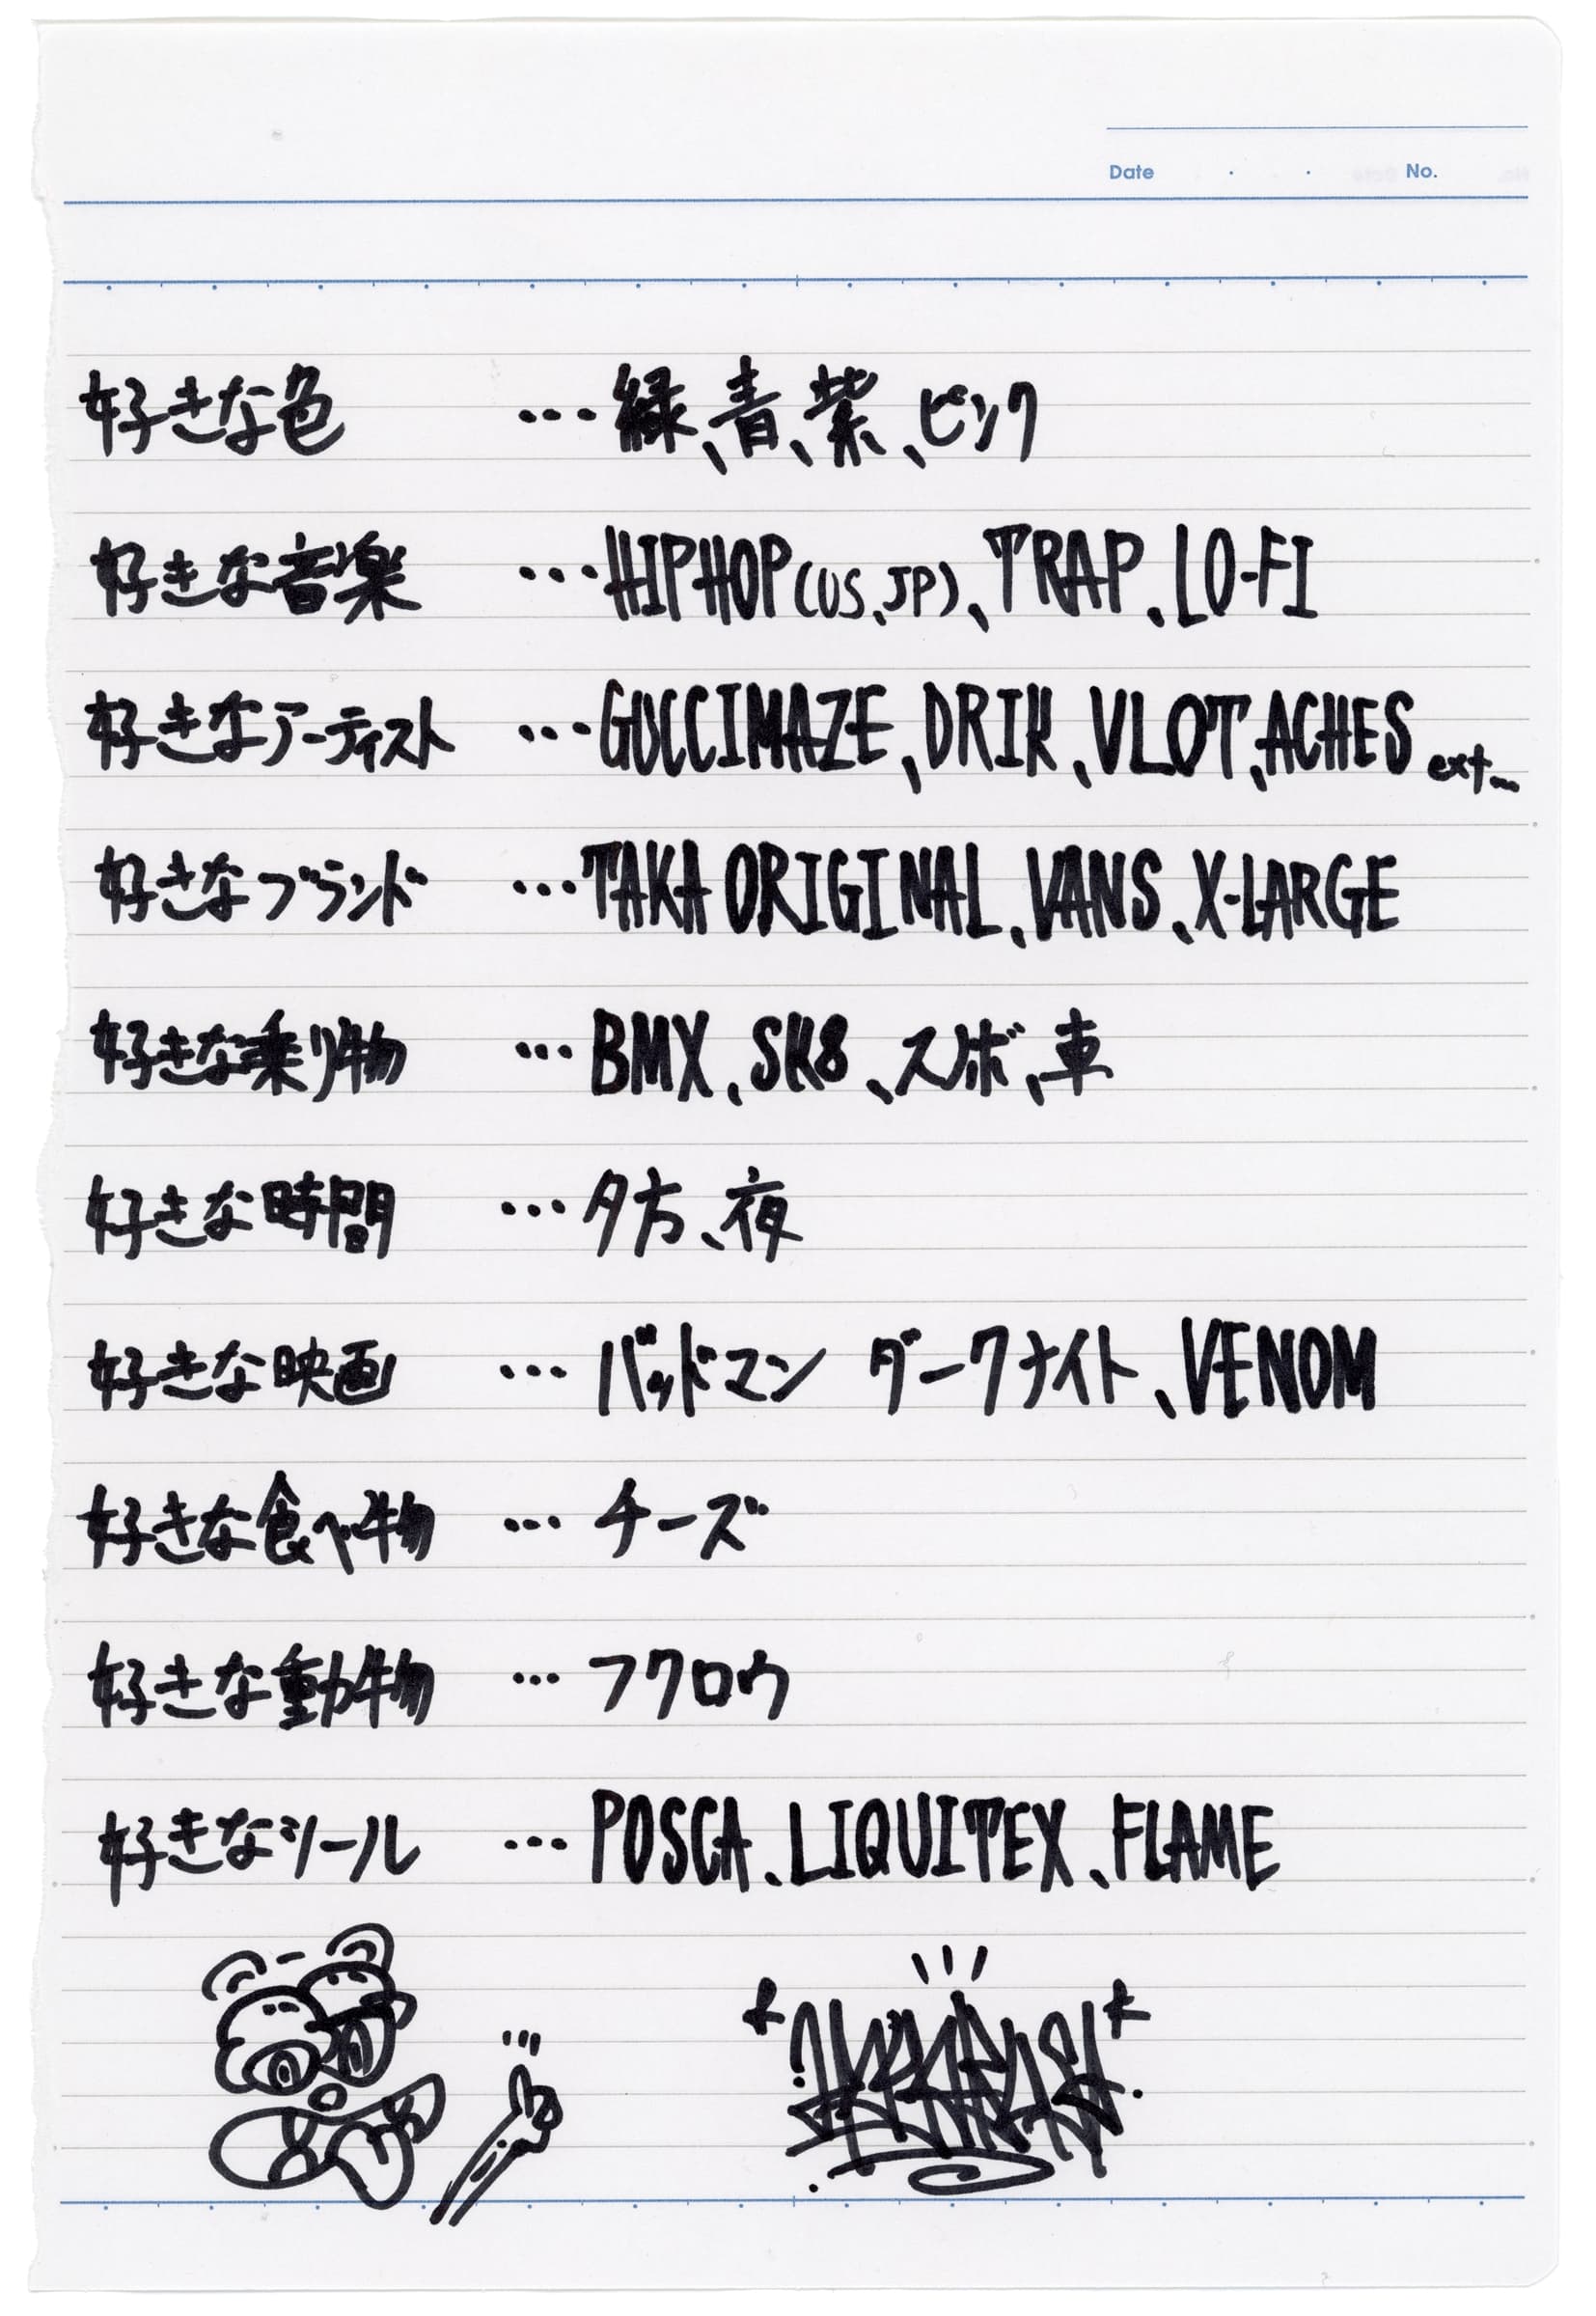 Date ・ ・ No.
好きな色 …緑、青、紫、ピンク
好きな音楽 …HIPHOP(US、JP)、TRAP、LO-FI
好きなアーティスト …GUCCIMAZE、DRIK、VLOT、ACHES ext…
好きなブランド …TAKA ORIGINAL、VANS、X-LARGE
好きな乗り物 …BMX、SK8、スノボ、車
好きな時間 …夕方、夜
好きな映画 …バッドマン ダークナイト、VENOM
好きな食べ物 …チーズ
好きな動物 …フクロウ
好きなツール …POSCA、LIQUITEX、FLAME